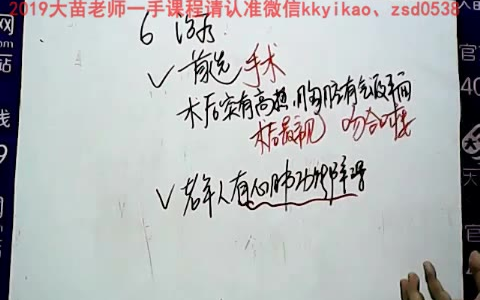 2019大苗老师一手课程请认准微信kkyikao、zsd0538
6 治疗
✓首选 手术
术后突有高热,胸腔有气液平面
术后最常见 吻合口瘘
✓老年人有心肺功能障碍
网
站
9
官
40
官